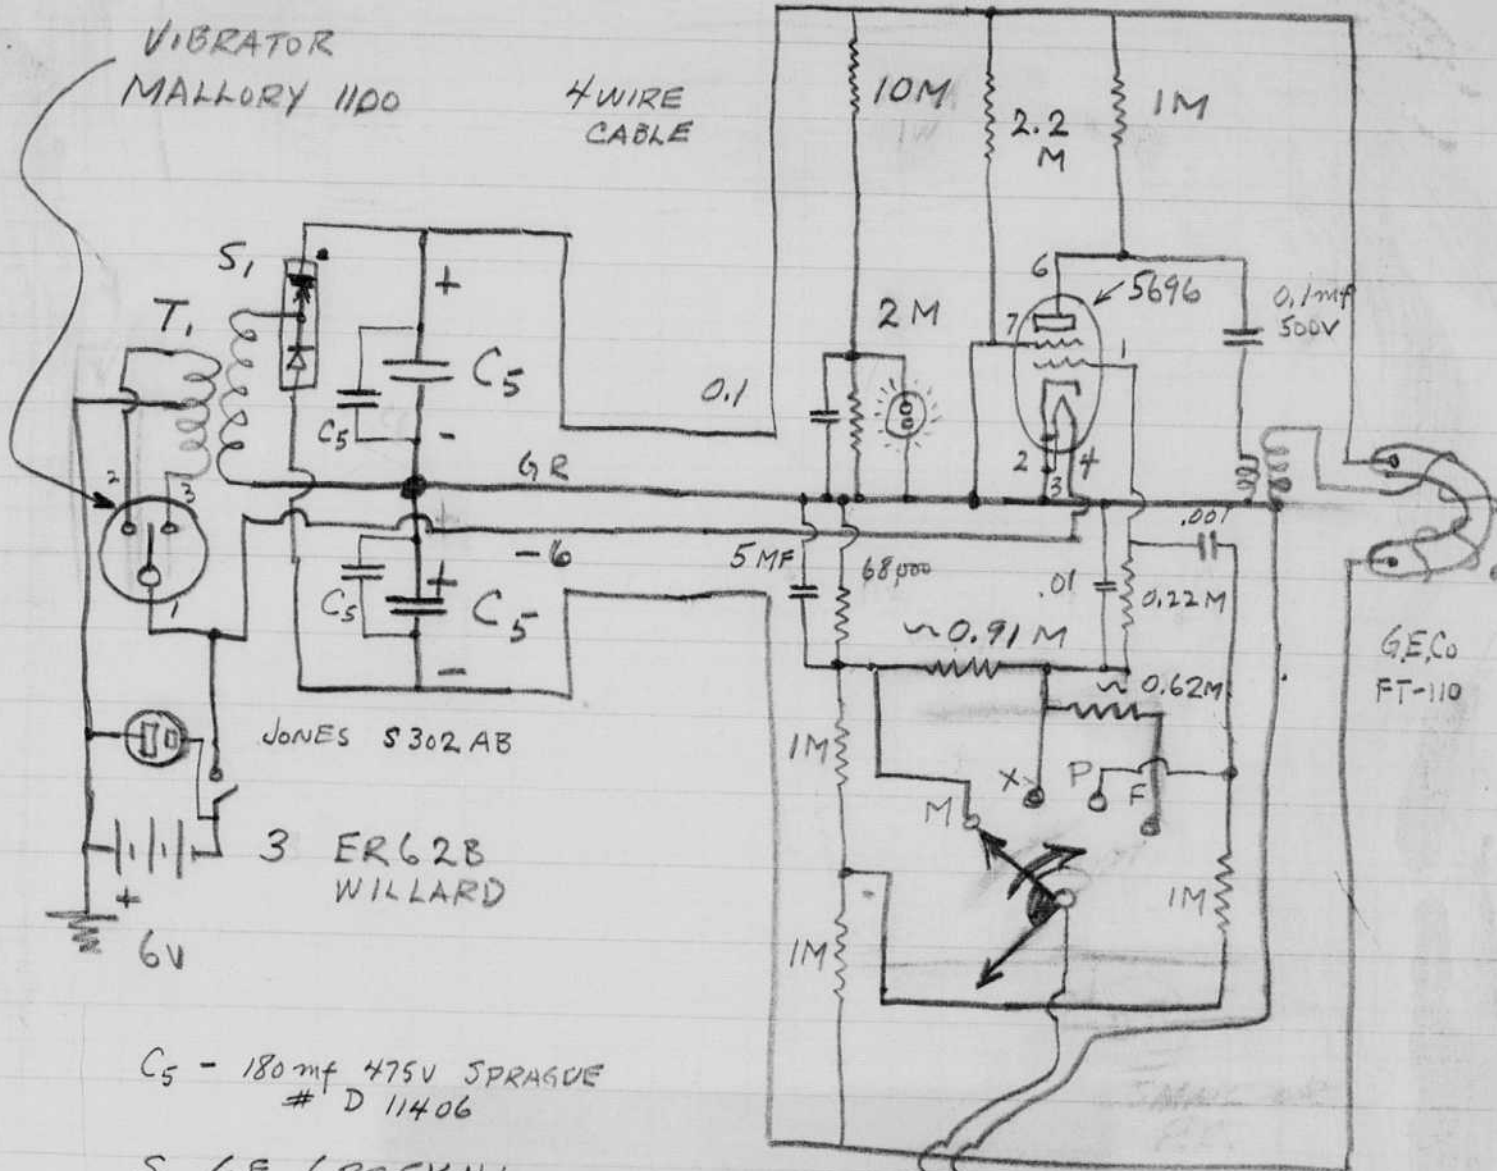 VIBRATOR
MALLORY 1100
4 WIRE
CABLE
10M
1W
2.2
M
1M
S1
T1
+
C5
C5
-
2M
0.1
6
5696
7
1
0.1mf
500V
2
3
4
GR
2
3
1
-6
C5
+
C5
-
5 MF
68,000
.01
.001
0.22M
~0.91M
~0.62M
G.E.Co
FT-110
JONES S302AB
1M
X
P
F
M
3 ER62B
WILLARD
+
6V
-
1M
1M
C5 - 180 mf 475V SPRAGUE
# D 11406